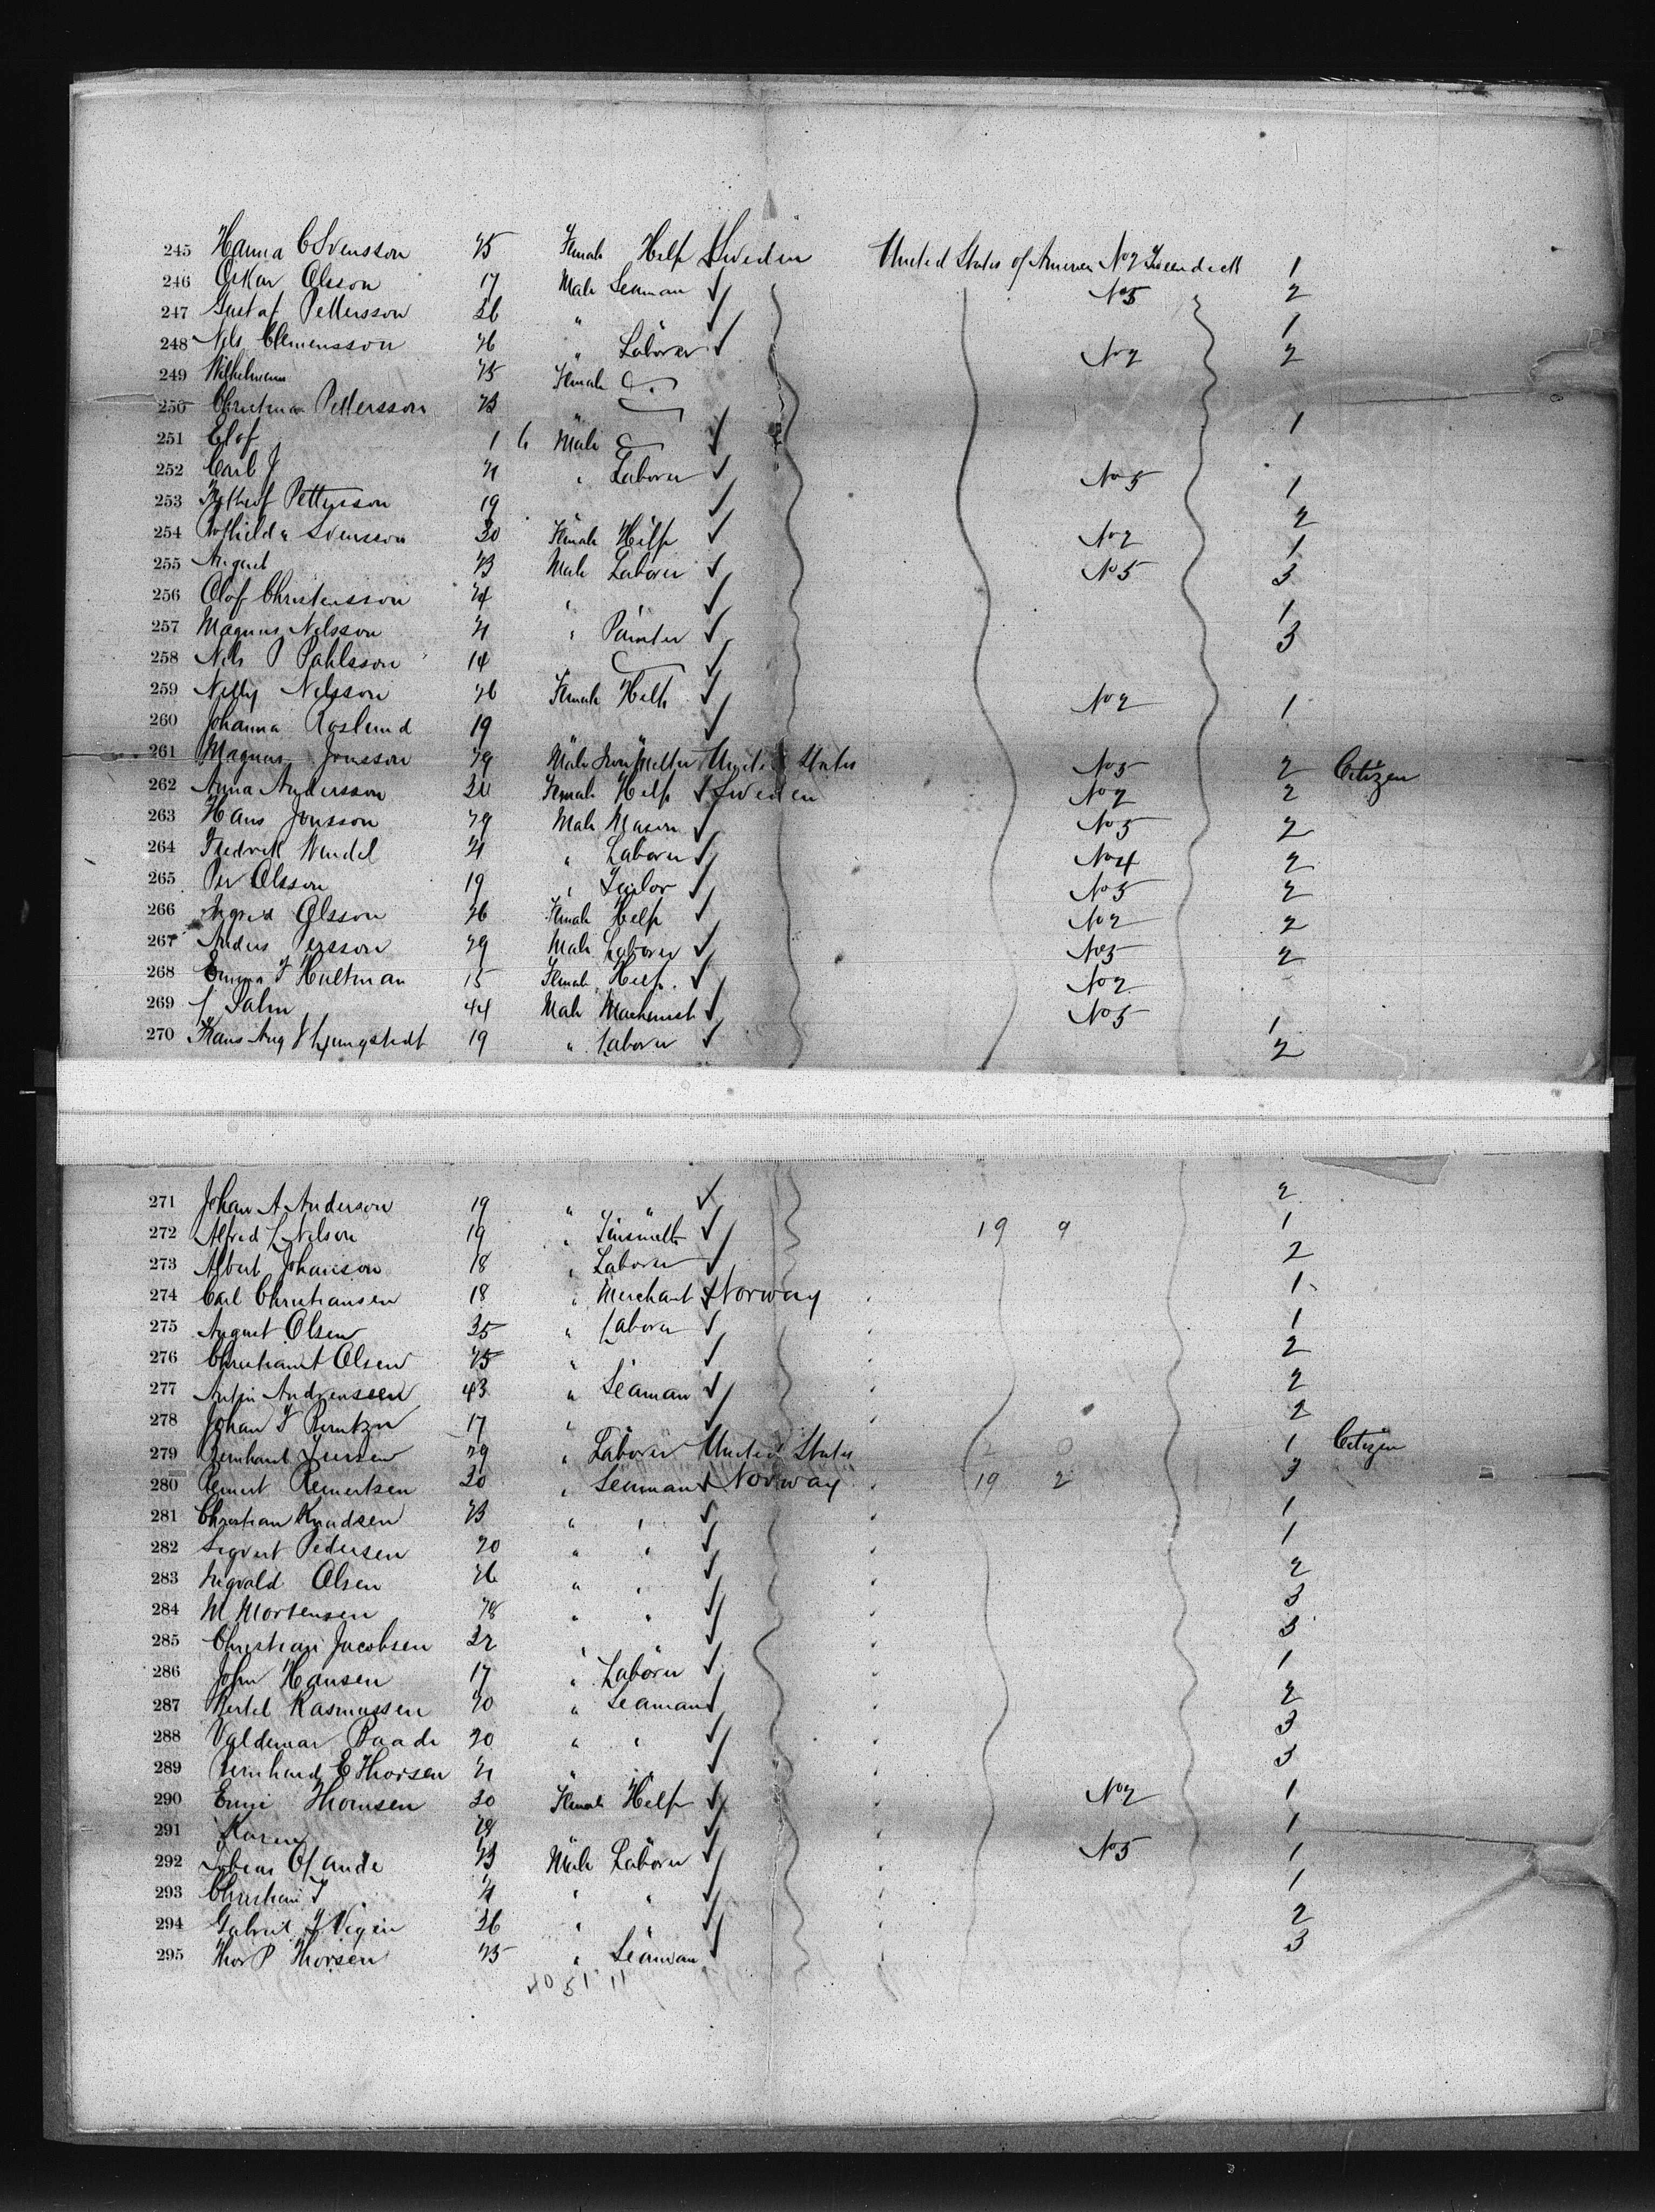 245 Hanna C Svensson 25 Female Help Sweden United States of America No 2 Tweendeck 1
246 Oskar Olsson 17 Male Seaman No 5 2
247 Gustaf Pettersson 26 " " 1
248 Nils Clemensson 26 " Laborer No 2 2
249 25 Female
250 Pettersson 23 "
251 Elof 1 6 Male 1
252 Carl J 21 " Laborer No 5
253 Pettersson 19 1
254 Svensson 20 Female Help No 2 2
255 August 23 Male Laborer No 5 1 3
256 Olof Christensson 24 " " 1
257 Magnus Nelsson 21 " Painter 3
258 Nils P Pahlsson 14
259 Nelly Nelsson 26 Female Help No 2 1
260 Johanna Roslund 19 " "
261 Magnus Jonsson 29 Male United States No 5 2 Citizen
262 Anna Andersson Female Help Sweden No 2 2
263 Hans Jonsson 29 Male Mason No 5 2
264 Fredrik 21 " Laborer No 4 2
265 Per Olsson 19 " Tailor No 5 2
266 Ingrid Olsson 26 Female Help No 2 2
267 Anders Persson 29 Male Laborer No 5 2
268 Emma F Hultman 15 Female Help No 2
269 Salm 44 Male Machinist No 5 1
270 Frans Aug Ljungstedt 19 " Laborer 2
271 Johan A Anderson 19 " 2
272 Alfred L Nelson 19 " Tinsmith 19 9 1
273 Albert Johanson 18 " Laborer 2
274 Carl Christiansen 18 " Merchant Norway 1
275 August Olsen 35 " Laborer 1
276 Olsen 25 " 2
277 Andreassen 43 " Seaman 2
278 Johan F 17 " " 2
279 Bernhard 29 " Laborer United States 2 0 1 Citizen
280 Reinert Reinertsen 30 " Seaman Norway 19 2 3
281 Christian Knudsen 23 " " 1
282 Sigvart Pedersen 20 " " 1
283 Ingvald Olsen 26 " " 2
284 M Mortensen 28 " " 3
285 Christian Jacobsen 32 " " 3
286 John Hansen 17 " Laborer 1
287 Bertel Rasmussen 20 " Seaman 2
288 Valdemar Baade 20 " " 3
289 Bernhard E Thorsen 21 " " 3
290 Thomsen 30 Female Help No 2 1
291 Karen 28 " " 1
292 Tobias 23 Male Laborer No 5 1
293 Christian T 21 " " 1
294 Gabriel 26 " " 2
295 Thor P Thorsen 25 " Seaman 3
40 51 11